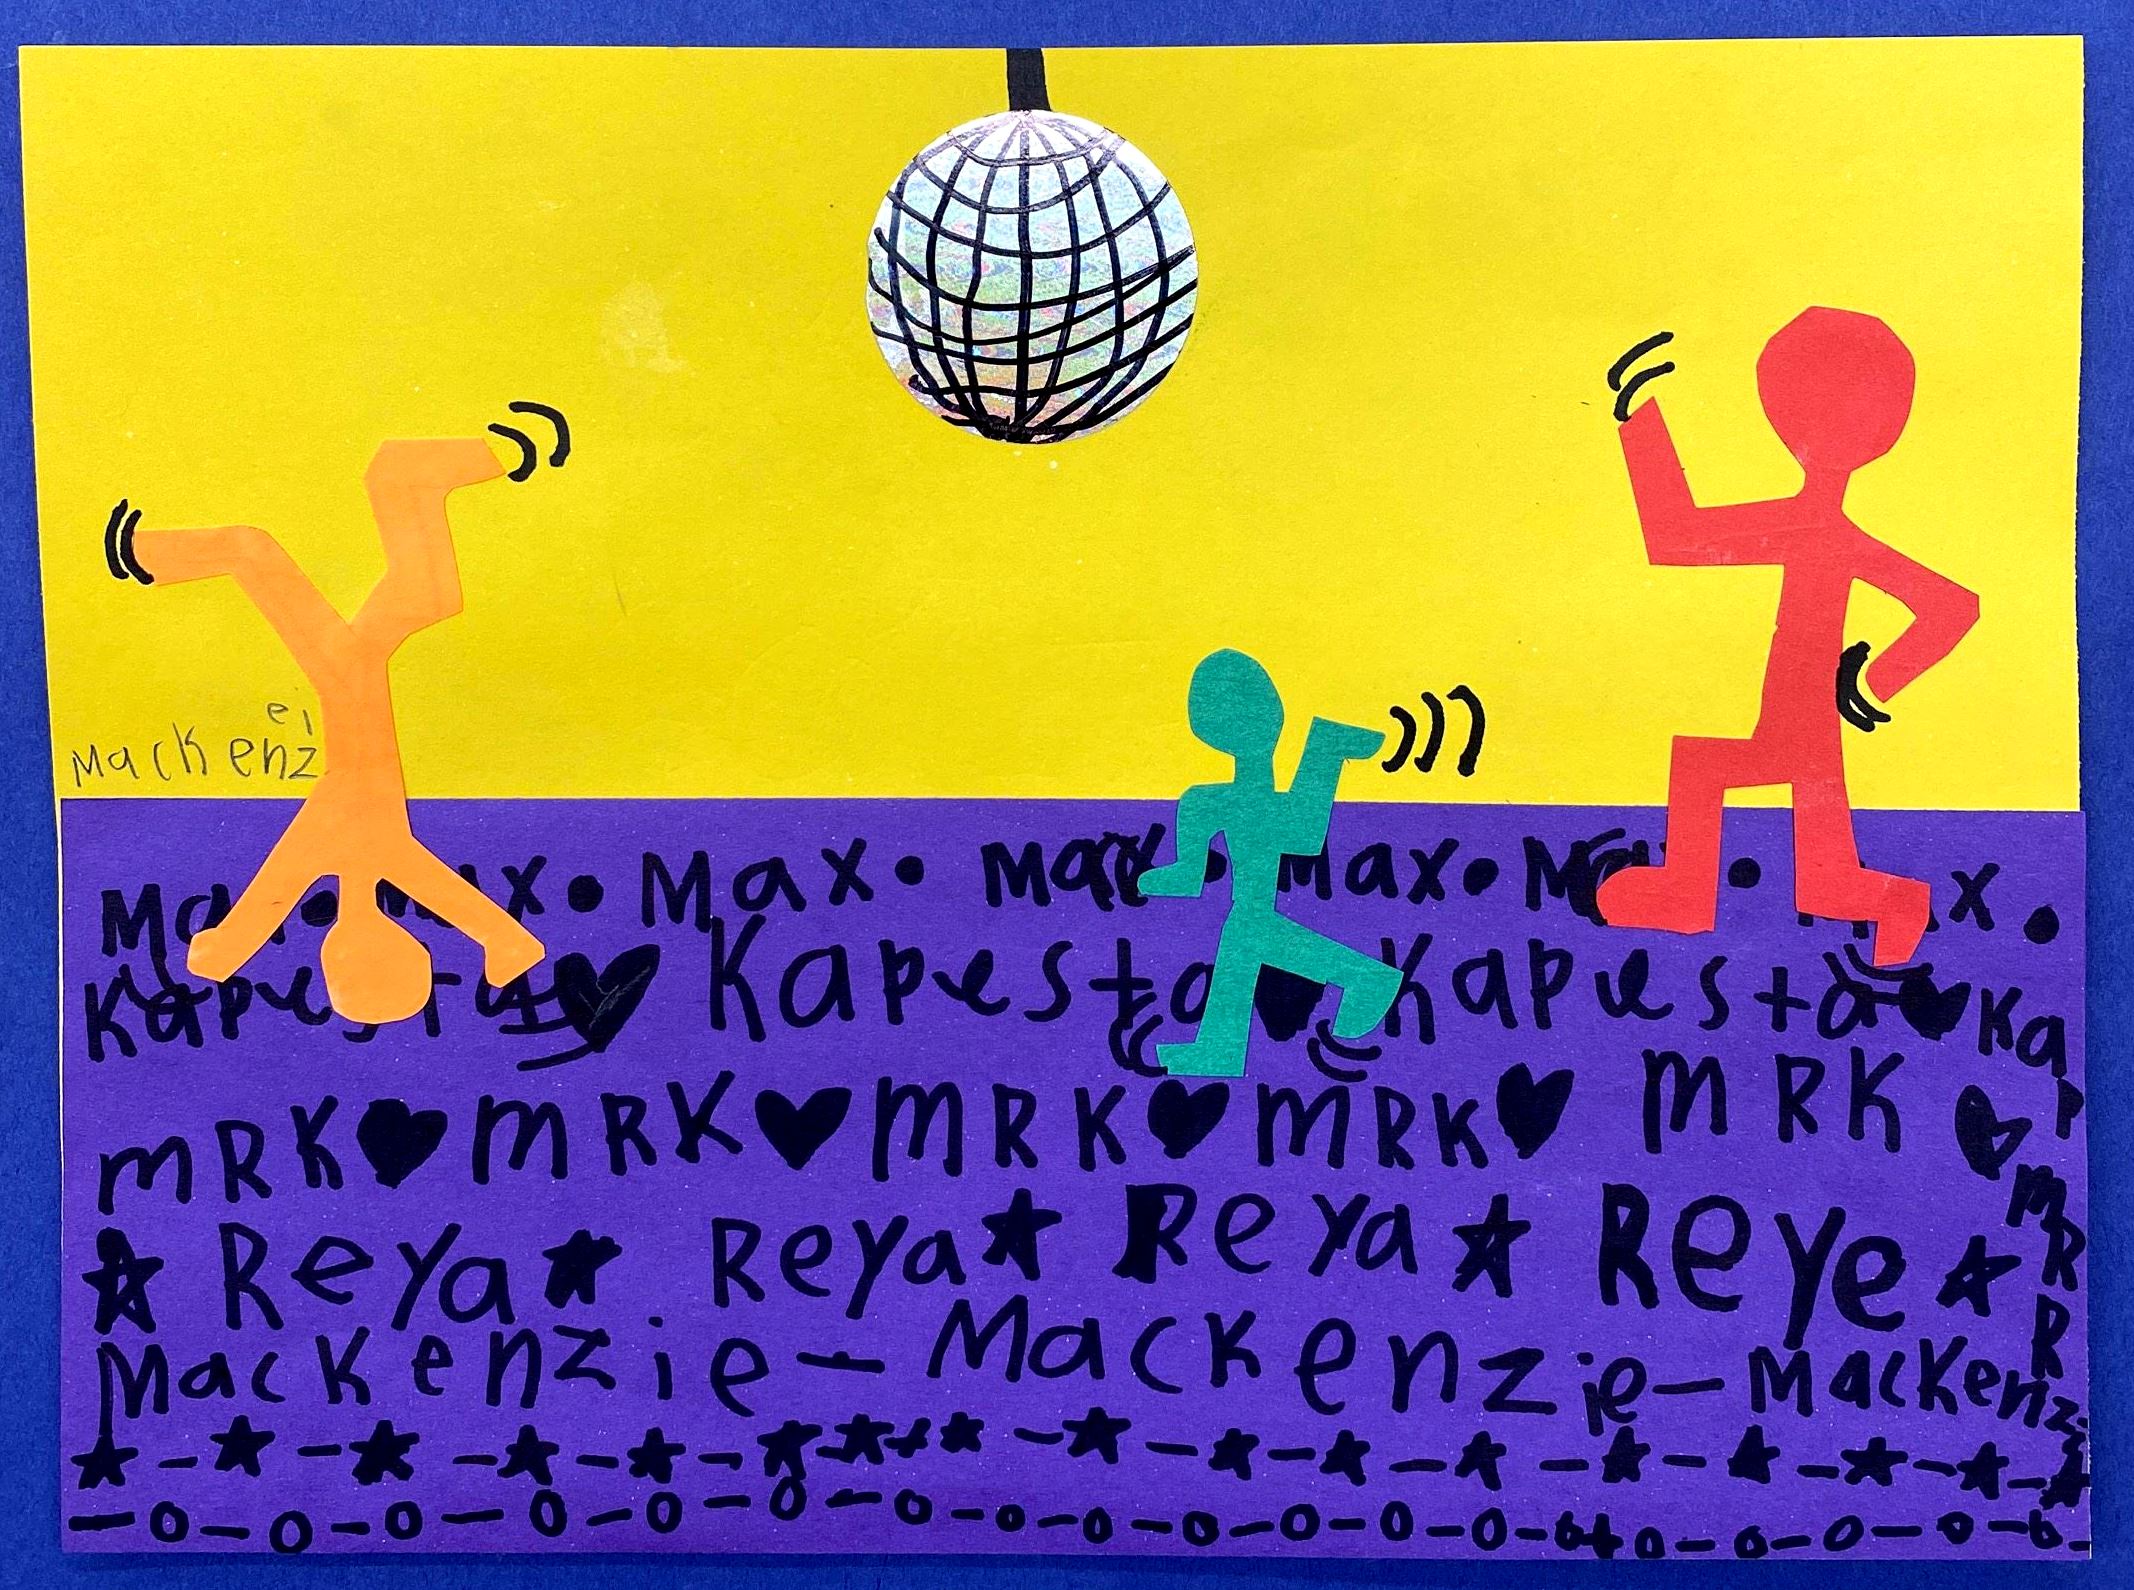 Mackenzie
Max • Max • Max • Max • Max • Max • Max •
Kapusta ♥ Kapusta ♥ Kapusta ♥ Kap
MRK ♥ MRK ♥ MRK ♥ MRK ♥ MRK ♥ MRK
★ Reya ★ Reya ★ Reya ★ Reye ★ R
Mackenzie — Mackenzie — Mackenzie